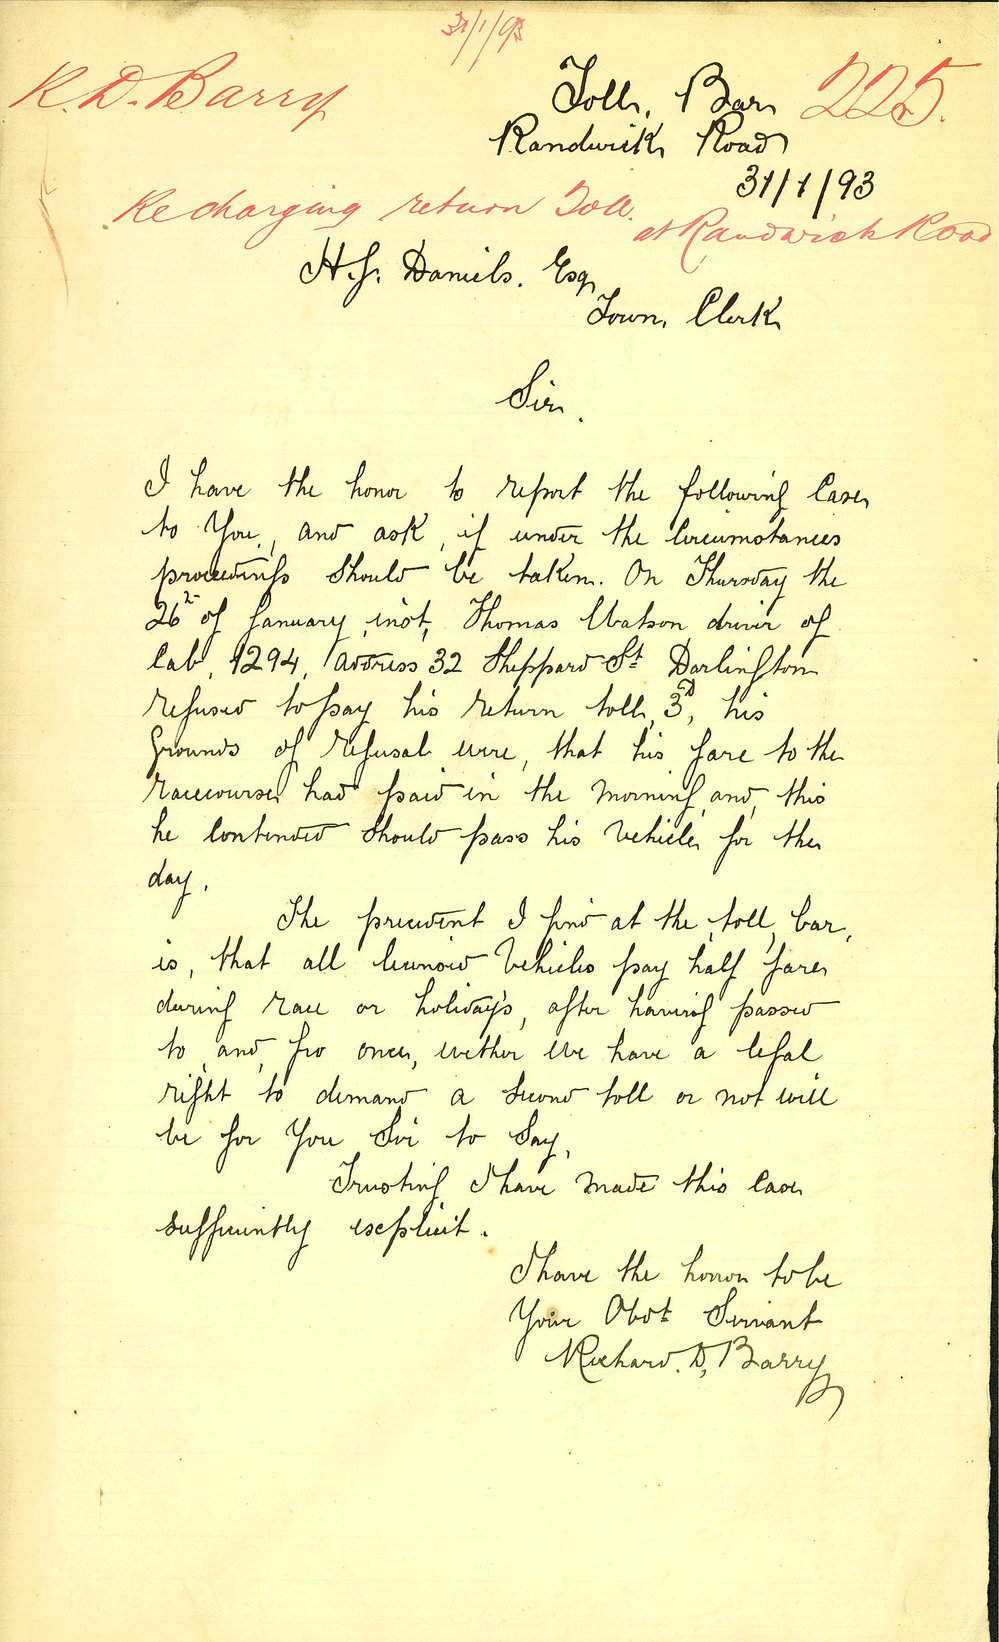 31/1/93
R. D. Barry
225.
Toll, Bar
Randwick Road
31/1/93
Re charging return Toll.
at Randwick Road
H. J. Daniels. Esq
Town, Clerk
Sir.
I have the honor to report the following Case
to You, and ask, if under the Circumstances
proceedings should be taken. On Thursday the
26th of January, inst, Thomas Watson driver of
Cab, 1294, address 32 Sheppard St Darlington
refused to pay his return toll, 3D, his
Grounds of refusal were, that his fare to the
racecourse had paid in the morning, and, this
he Contended should pass his Vehicle, for the
day.
The precedent I find at the, toll, bar,
is, that all licensed Vehicles pay half fare
during race or holidays, after having passed
to, and, fro once, wether we have a legal
right to demand a second toll or not will
be for You Sir to Say,
Trusting I have made this Case
sufficiently explicit.
I have the honor to be
Your Obdt Servant
Richard. D, Barry